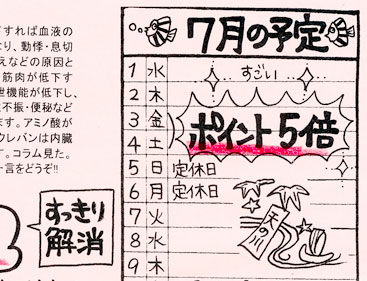 すれば血液の
り、動悸・息切
えなどの原因と
筋肉が低下す
世機能が低下し、
不振・便秘など
ます。アミノ酸が
ウレバンは内臓
す。コラム見た。
一言をどうぞ!!
すっきり
解消
7月の予定
1 水
2 木
3 金
4 土
5 日 定休日
6 月 定休日
7 火
8 水
9 木
すごい
ポイント5倍
天の川